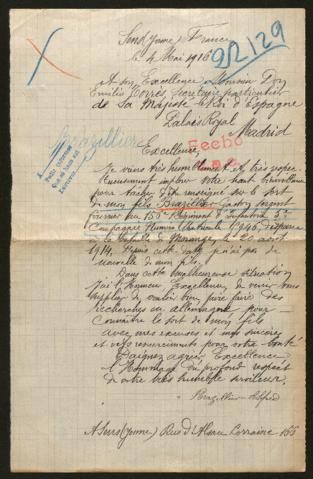 Sens (Yonne) France
le 4 Mai 1916
9B/129
A son Excellence Monsieur Don
Emilio Torres, Secrétaire particulier
de Sa Majesté le Roi d'Espagne
Palais Royal
Madrid
Brazillier
Fecho
Excellence,
Je viens très humblement et très respec-
tueusement implorer votre haute bienveillance
pour tacher d'être renseigné sur le sort
de mon fils Brazillier Gaston, sergent
fourrier au 156e Régiment d'Infanterie 5e
Compagnie Numéro Matricule disparu
à la Bataille de Morange, le 20 aout
1914. Depuis cette date je n'ai pas de
nouvelle de mon fils.
Dans cette malheureuse situation
j'ai l'honneur Excellence de venir vous
supplier de vouloir bien faire faire des
recherches en allemagne pour
connaître le sort de mon fils
avec mes excuses et mes sincères
et vifs remerciements pour votre bonté
Daignez agréer Excellence
l'Hommage du profond respect
de votre très humble serviteur.
Brazillier Alfred
A Sens (Yonne) Rue d'Alsace Lorraine 166